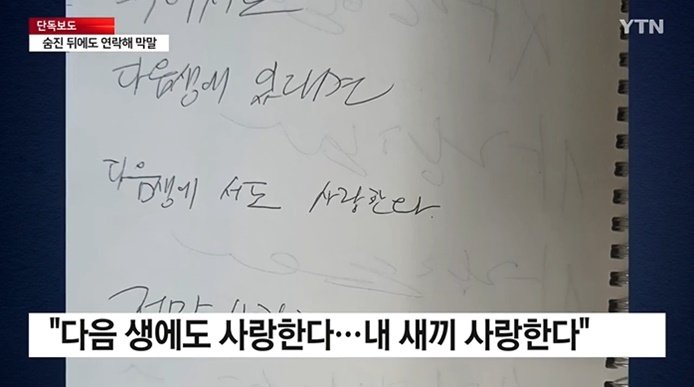 단독보도
숨진 뒤에도 연락해 막말
YTN
다음생에 있다면
다음생에서도 사랑한다.
"다음 생에도 사랑한다…내 새끼 사랑한다"